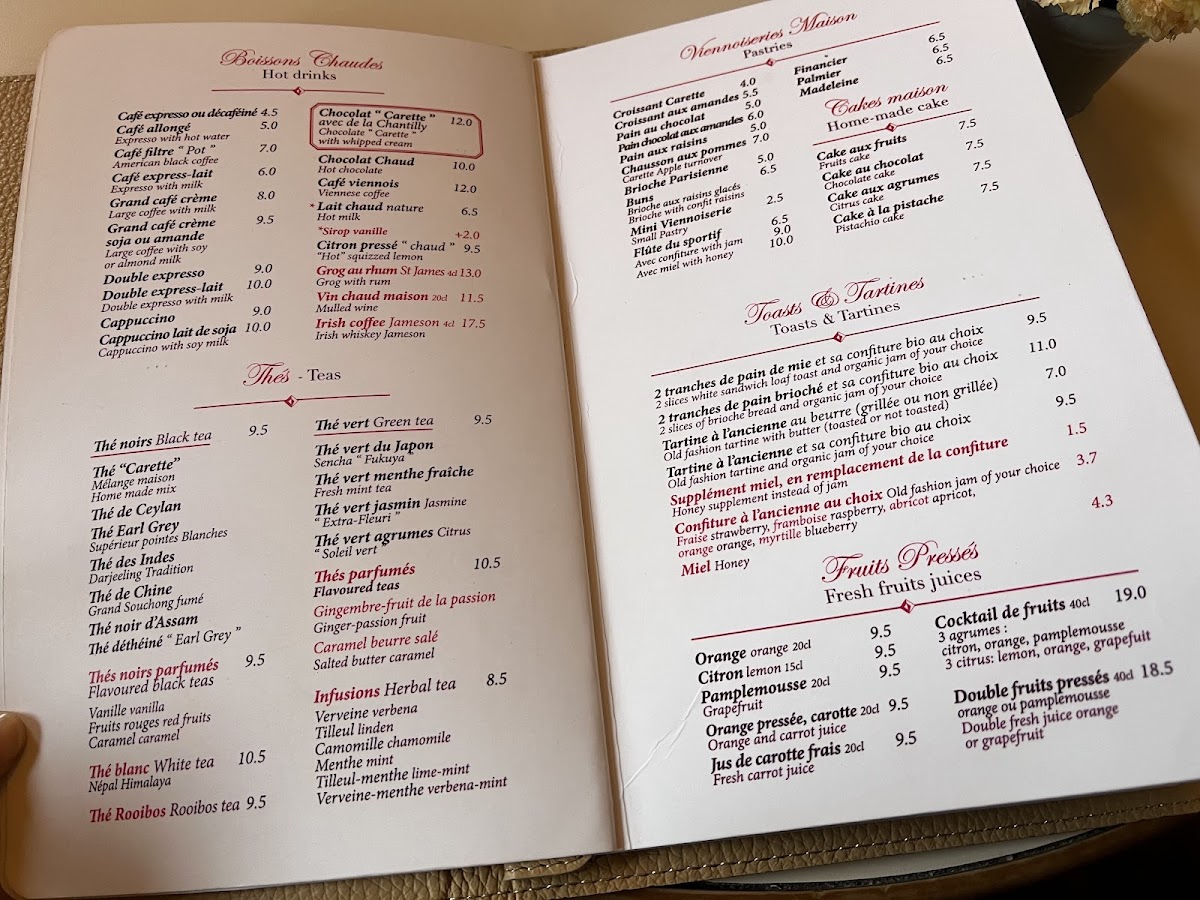 Boissons Chaudes
Hot drinks
Café expresso ou décaféiné 4.5
Café allongé 5.0
Expresso with hot water
Café filtre " Pot " 7.0
American black coffee
Café express-lait 6.0
Expresso with milk
Grand café crème 8.0
Large coffee with milk
Grand café crème 9.5
soja ou amande
Large coffee with soy
or almond milk
Double expresso 9.0
Double express-lait 10.0
Double expresso with milk
Cappuccino 9.0
Cappuccino lait de soja 10.0
Cappuccino with soy milk
Chocolat " Carette " 12.0
avec de la Chantilly
Chocolate " Carette "
with whipped cream
Chocolat Chaud 10.0
Hot chocolate
Café viennois 12.0
Viennese coffee
*Lait chaud nature 6.5
Hot milk
*Sirop vanille +2.0
Citron pressé " chaud " 9.5
"Hot" squizzed lemon
Grog au rhum St James 4cl 13.0
Grog with rum
Vin chaud maison 20cl 11.5
Mulled wine
Irish coffee Jameson 4cl 17.5
Irish whiskey Jameson
Thés - Teas
Thé noirs Black tea 9.5
Thé "Carette"
Mélange maison
Home made mix
Thé de Ceylan
Thé Earl Grey
Supérieur pointes Blanches
Thé des Indes
Darjeeling Tradition
Thé de Chine
Grand Souchong fumé
Thé noir d'Assam
Thé déthéiné " Earl Grey "
Thés noirs parfumés 9.5
Flavoured black teas
Vanille vanilla
Fruits rouges red fruits
Caramel caramel
Thé blanc White tea 10.5
Népal Himalaya
Thé Rooibos Rooibos tea 9.5
Thé vert Green tea 9.5
Thé vert du Japon
Sencha " Fukuya
Thé vert menthe fraîche
Fresh mint tea
Thé vert jasmin Jasmine
" Extra-Fleuri "
Thé vert agrumes Citrus
" Soleil vert "
Thés parfumés 10.5
Flavoured teas
Gingembre-fruit de la passion
Ginger-passion fruit
Caramel beurre salé
Salted butter caramel
Infusions Herbal tea 8.5
Verveine verbena
Tilleul linden
Camomille chamomile
Menthe mint
Tilleul-menthe lime-mint
Verveine-menthe verbena-mint
Viennoiseries Maison
Pastries
Croissant Carette 4.0
Croissant aux amandes 5.5
Pain au chocolat 5.0
Pain chocolat aux amandes 6.0
Pain aux raisins 5.0
Chausson aux pommes 7.0
Carette Apple turnover
Brioche Parisienne 5.0
Buns 6.5
Brioche aux raisins glacés
Brioche with confit raisins
Mini Viennoiserie 2.5
Small Pastry
Flûte du sportif 6.5
Avec confiture with jam 9.0
Avec miel with honey 10.0
Financier 6.5
Palmier 6.5
Madeleine 6.5
Cakes maison
Home-made cake
Cake aux fruits 7.5
Fruits cake
Cake au chocolat 7.5
Chocolate cake
Cake aux agrumes 7.5
Citrus cake
Cake à la pistache 7.5
Pistachio cake
Toasts & Tartines
Toasts & Tartines
2 tranches de pain de mie et sa confiture bio au choix 9.5
2 slices white sandwich loaf toast and organic jam of your choice
2 tranches de pain brioché et sa confiture bio au choix 11.0
2 slices of brioche bread and organic jam of your choice
Tartine à l'ancienne au beurre (grillée ou non grillée) 7.0
Old fashion tartine with butter (toasted or not toasted)
Tartine à l'ancienne et sa confiture bio au choix 9.5
Old fashion tartine and organic jam of your choice
Supplément miel, en remplacement de la confiture 1.5
Honey supplement instead of jam
Confiture à l'ancienne au choix Old fashion jam of your choice 3.7
Fraise strawberry, framboise raspberry, abricot apricot,
orange orange, myrtille blueberry
Miel Honey 4.3
Fruits Pressés
Fresh fruits juices
Orange orange 20cl 9.5
Citron lemon 15cl 9.5
Pamplemousse 20cl 9.5
Grapefruit
Orange pressée, carotte 20cl 9.5
Orange and carrot juice
Jus de carotte frais 20cl 9.5
Fresh carrot juice
Cocktail de fruits 40cl 19.0
3 agrumes :
citron, orange, pamplemousse
3 citrus: lemon, orange, grapefuit
Double fruits pressés 40cl 18.5
orange ou pamplemousse
Double fresh juice orange
or grapefruit